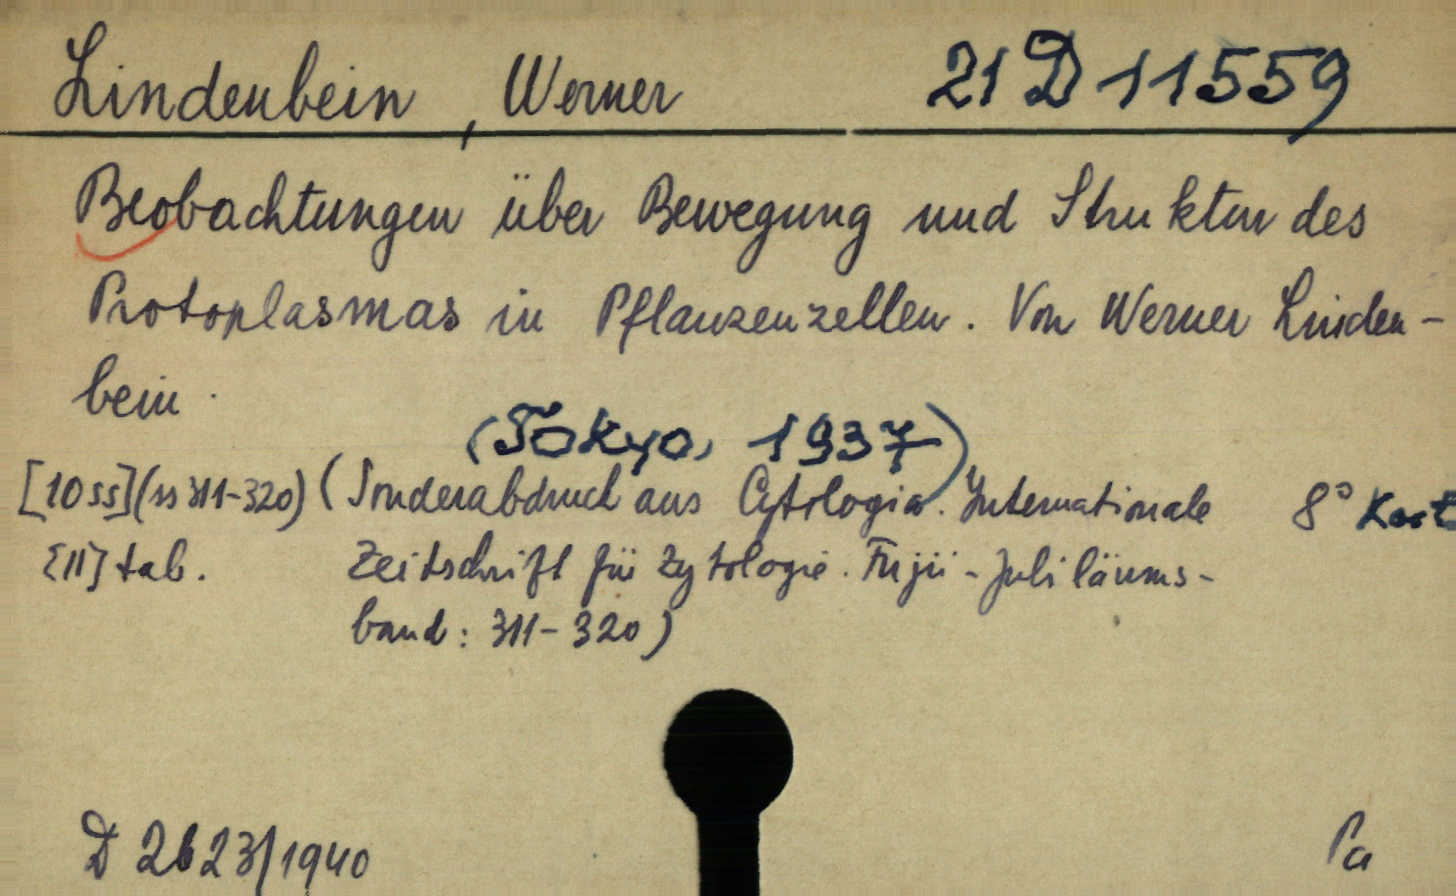 Lindenbein, Werner 21 D 11559
Beobachtungen über Bewegung und Struktur des
Protoplasmas in Pflanzenzellen. Von Werner Linden-
bein.
(Tokyo, 1937)
[10 ss] (ss 311-320) (Sonderabdruck aus Cytologia. Internationale 8° Kart
[II] tab. Zeitschrift für Zytologie. Fujii-Jubiläums-
band: 311-320)
D 2623/1940 Pa